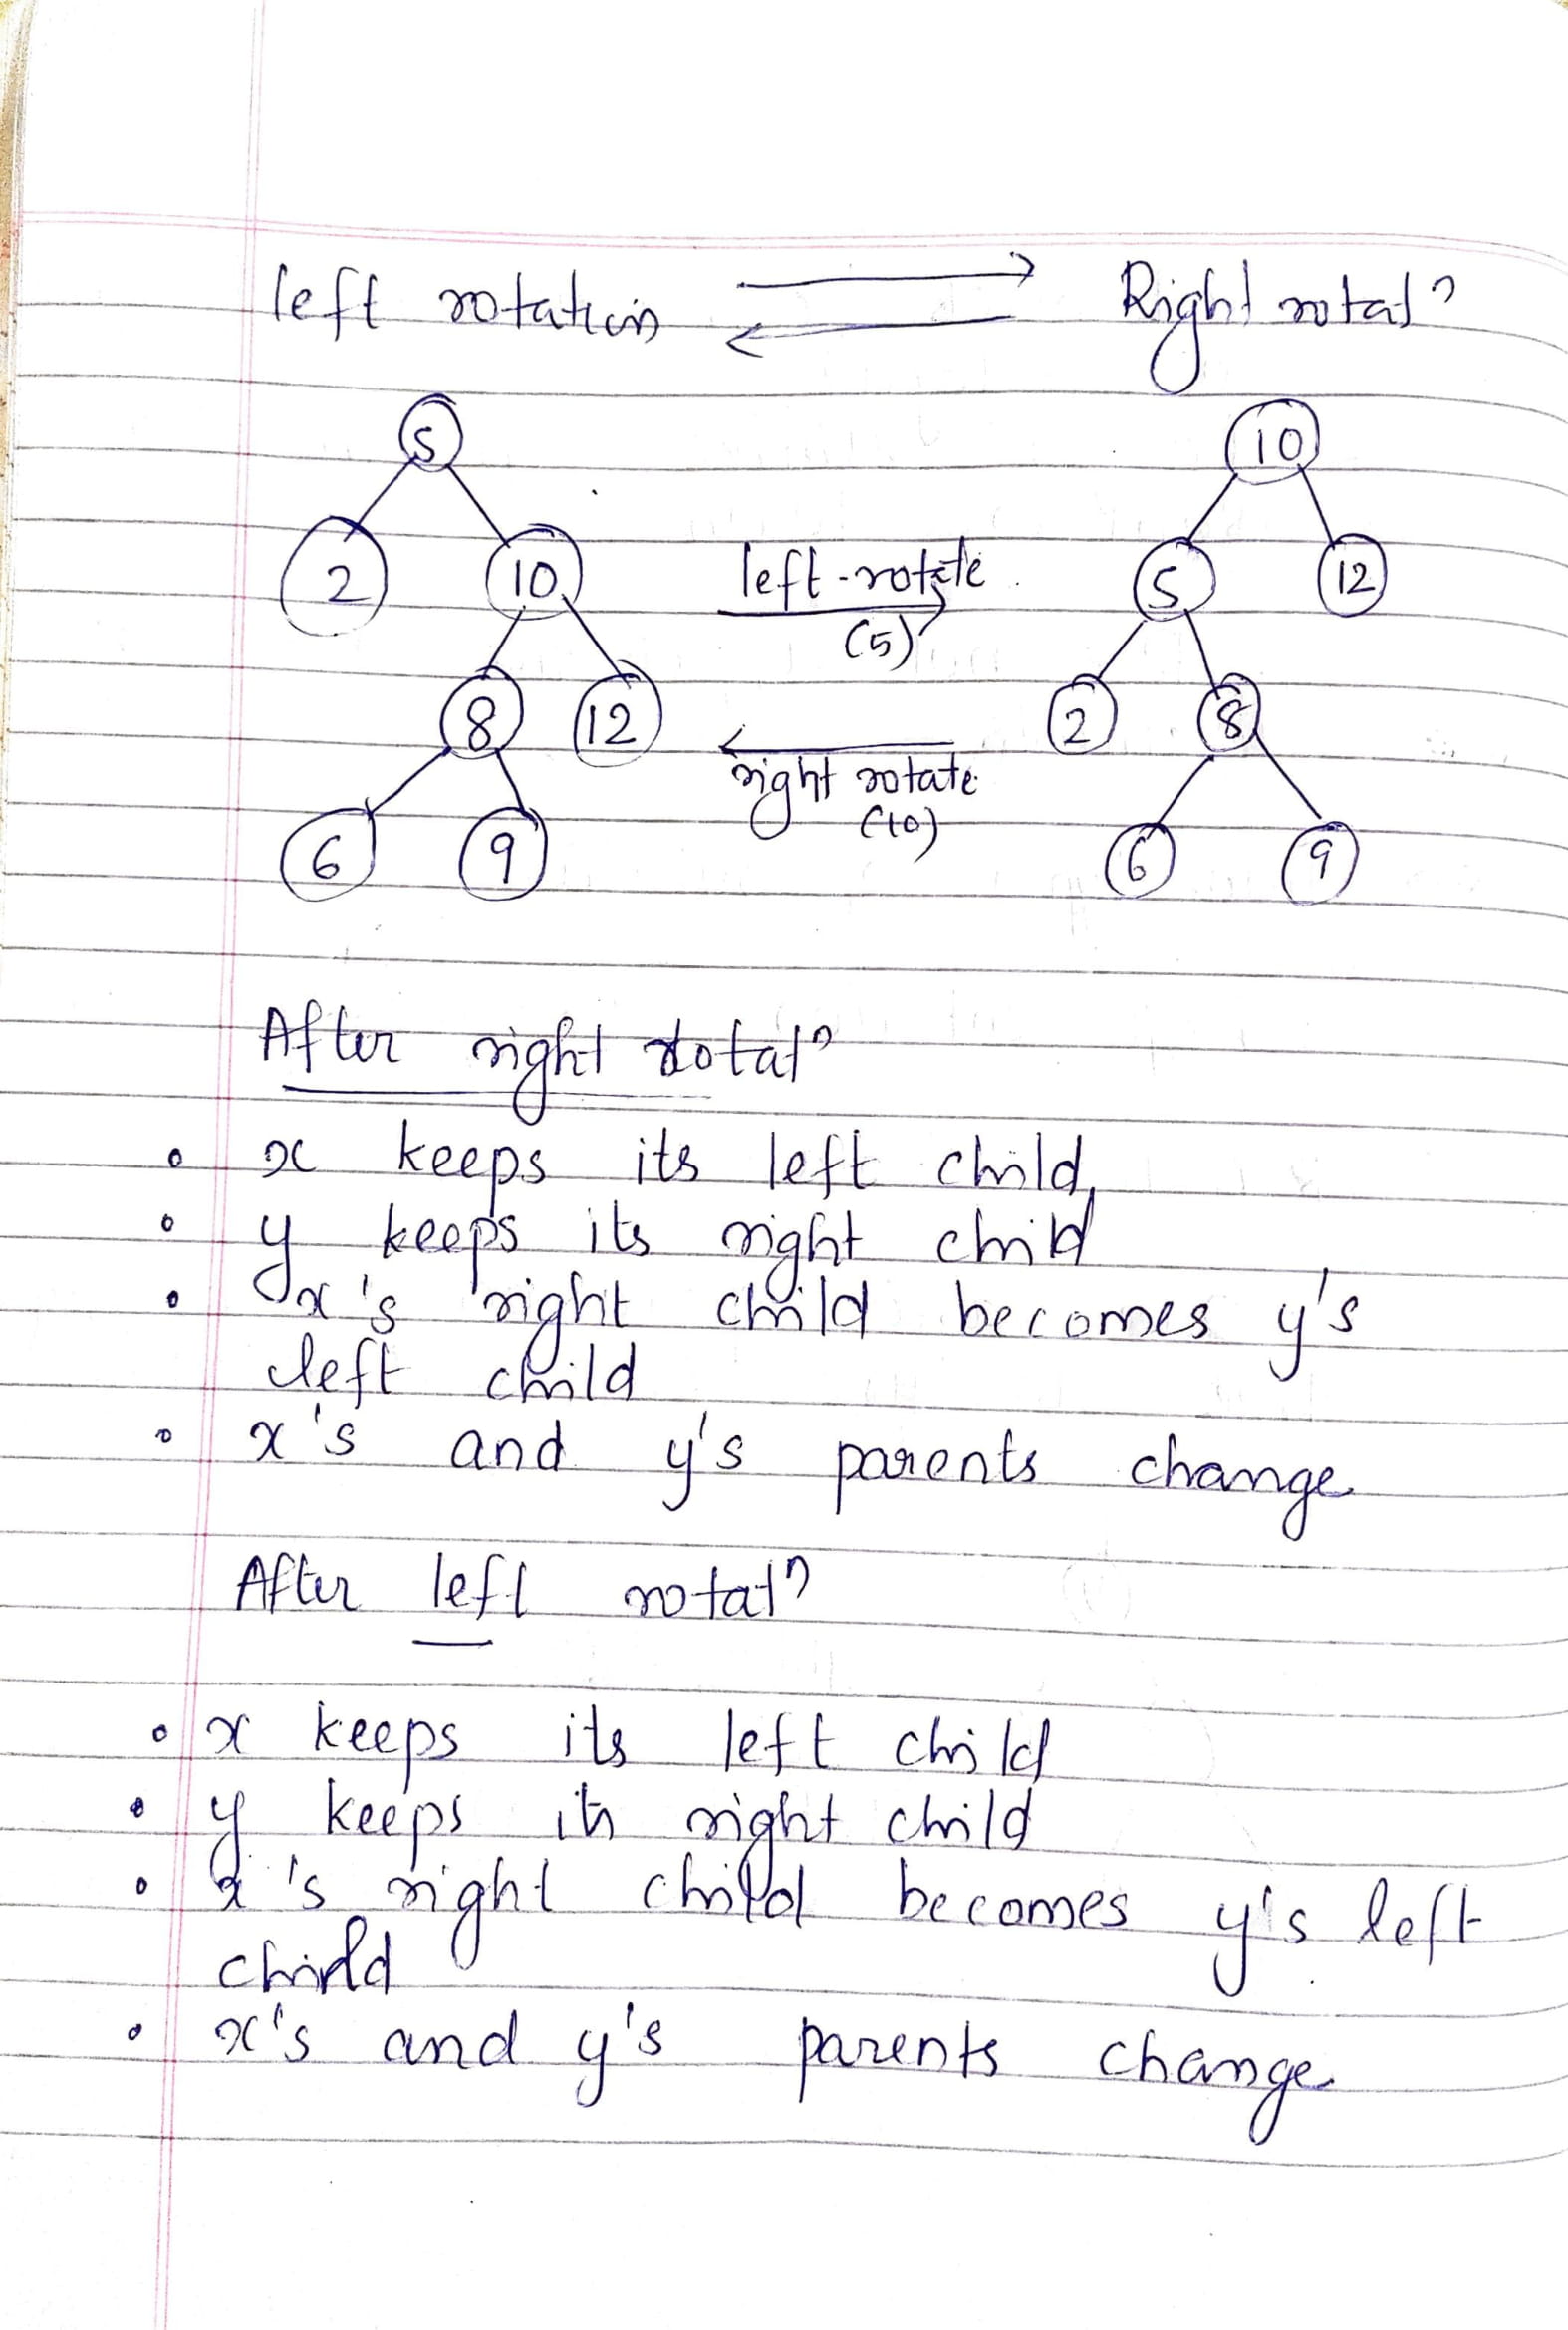 left rotation Right rotatⁿ
5 10
2 10 left-rotate 5 12
(5)
8 12 2 8
right rotate
(10)
6 9 6 9
After right rotatⁿ
• x keeps its left child,
• y keeps its right child
• x's right child becomes y's
left child
• x's and y's parents change
After left rotatⁿ
• x keeps its left child
• y keeps its right child
• x's right child becomes y's left
child
• x's and y's parents change